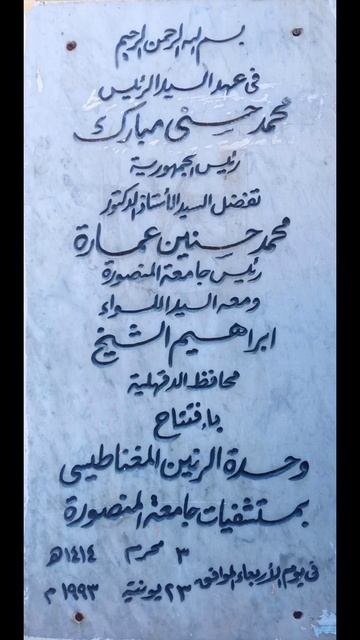 بسم الله الرحمن الرحيم
فى عهد السيد الرئيس
محمد حسنى مبارك
رئيس الجمهورية
تفضل السيد الأستاذ الدكتور
محمد حسنين عمارة
رئيس جامعة المنصورة
ومعه السيد اللواء
ابراهيم الشيخ
محافظ الدقهلية
بإفتتاح
وحدة الرنين المغناطيسى
بمستشفيات جامعة المنصورة
فى يوم الأربعاء الموافق ٣ محرم ١٤١٤ هـ
٢٣ يونية ١٩٩٣ م